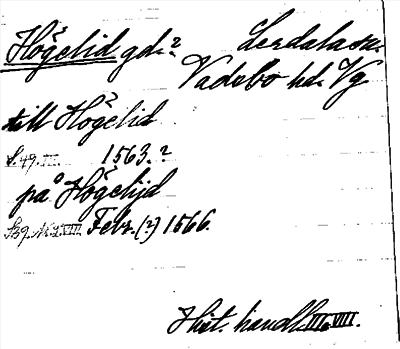 Högelid gd.? Lerdala sn.
Vadsbo hd. Vg
till Högelid
1563.?
på Högelijd
Febr. (?) 1566.
Hist. handl. III VIII.